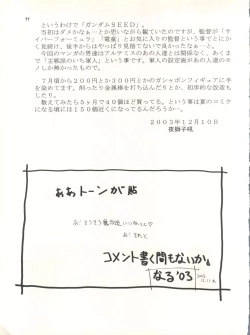 というわけで「ガンダムSEED」。
当初はダメかなぁ…とか思いながら観ていたのですが、監督が「サ
イバーフォーミュラ」「電童」とお気に入りの監督という事でとにか
く見続け、後半からはやっぱり見捨てないで良かったなぁ…と。
今回のマンガの男達はアルテミスのあの人達とは関係なく、あくま
で「主戦派のいち軍人」という事です。軍人の設定画があの人達のモ
ノしか無かったもので。
7月頃から200円とか300円とかのガシャポンフィギュアに手
を染めてます。削ったり金属棒を打ち込んだりとか、初歩的な改造も
したり。
数えてみたら5ヶ月で40個ほど買ってる。という事は夏のコミケ
になる頃には150個近くになってるんだろうか…。
2003年12月10日
夜獅子吼
ああトーンが貼
コメント書く間もないか。
なる'03